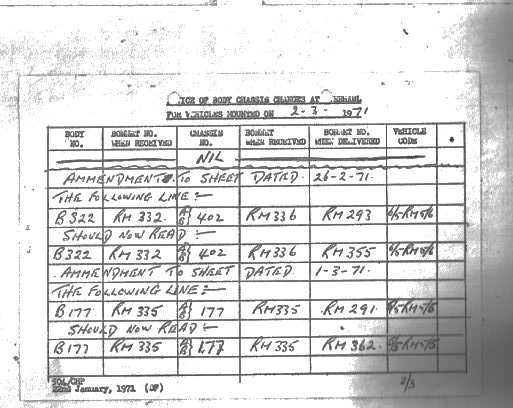 NOTICE OF BODY CHASSIS CHANGES AT OVERHAUL
FOR VEHICLES MOUNTED ON 2-3- 1971
BODY NO. BONNET NO. WHEN RECEIVED CHASSIS NO. BONNET WHEN RECEIVED BONNET NO. WHEN DELIVERED VEHICLE CODE *
NIL
AMMENDMENT TO SHEET DATED 26-2-71.
THE FOLLOWING LINE:-
B322 RM 332 402 RM336 RM 293
SHOULD NOW READ:-
B322 RM 332 402 RM336 RM 355
AMMENDMENT TO SHEET DATED 1-3-71.
THE FOLLOWING LINE:-
B177 RM 335 177 RM335 RM 291
SHOULD NOW READ:-
B177 RM 335 177 RM 335 RM 362
22nd January, 1971 (OF)
2/3